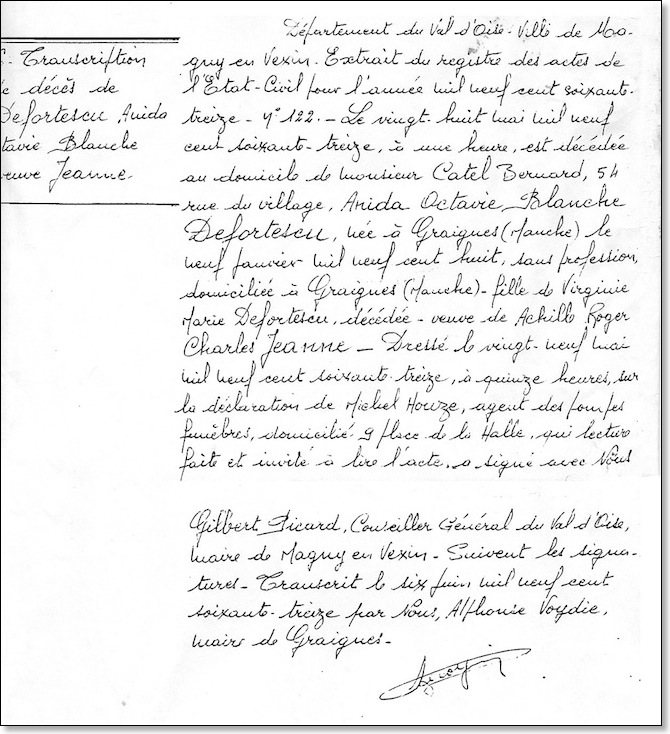 - Transcription
décès de
Defortescu Anida
tavie Blanche
euve Jeanne-
Département du Val d'Oise- Ville de Ma-
gny en Vexin. Extrait du registre des actes de
l'Etat-Civil pour l'année mil neuf cent soixante-
treize - N° 122. - Le vingt-huit mai mil neuf
cent soixante-treize, à une heure, est décédée
au domicile de monsieur Catel Bernard, 54
rue du village, Anida Octavie, Blanche
Defortescu, née à Graignes (Manche) le
neuf Janvier mil neuf cent huit, sans profession,
domiciliée à Graignes (Manche)- fille de Virginie
Marie Defortescu, décédée - veuve de Achille Roger
Charles Jeanne - Dressé le vingt-neuf mai
mil neuf cent soixante-treize, à quinze heures, sur
la déclaration de Michel Houze, agent des pompes
funèbres, domicilié 9 place de la Halle, qui lecture
faite et invité à lire l'acte, a signé avec Nous
Gilbert Picard, Conseiller Général du Val d'Oise,
maire de Magny en Vexin- Suivent les signa-
tures- Transcrit le six juin mil neuf cent
soixante-treize par Nous, Alphonse Voydie,
maire de Graignes-